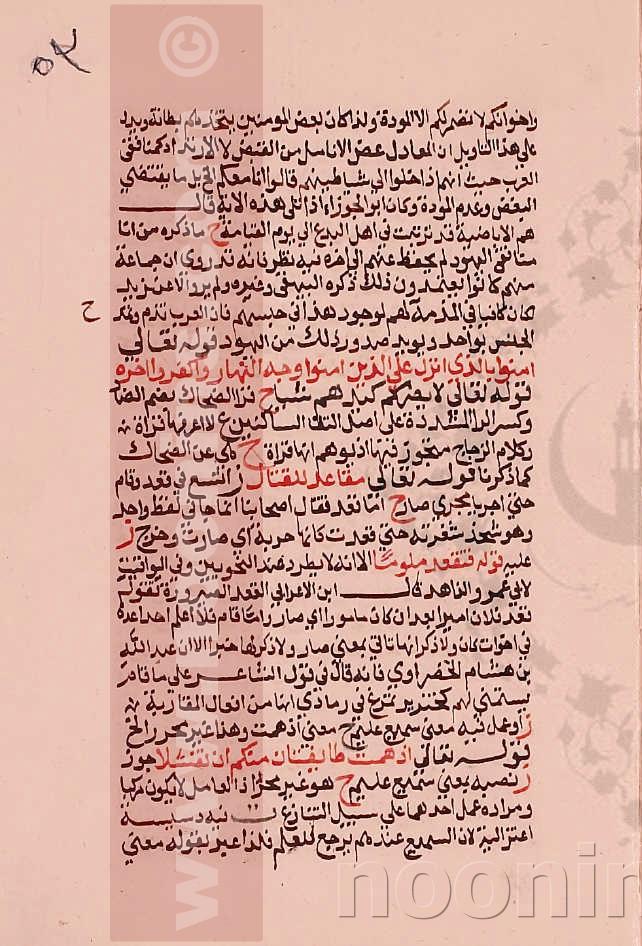 ٥٢
واخوانكم لا تضمر لكم الا المودة ولذا كان بعض المومنين يتخذهم بطانة ويرد
على هذا التاويل ان المعادل عض الانامل من الغيض لا الارتداد كمنافقي
العرب حيث انهم اذا خلوا الى شياطينهم قالوا انا معكم الخ بل ما يقتضي
البغض وعدم المودة وكان ابو الجوزاء اذا تلى هذه الاية قال
هم الاباضية قد ترتبت في اهل البدع الى يوم القيامة ح ما ذكره من ان
منافقي اليهود لم يحفظ عنهم الى اخره فيه نظر فانه قد روي ان جماعة
منهم كانوا يعتمدون ذلك ذكره البيهقي وغيره ولو لم يرو الا عن زيد
لكان كافيا في المذمة لهم لوجود هذا في جنسهم فان العرب تذم وتمدح
ح
الجنس بواحد ويويد صدور ذلك من اليهود قوله تعالى
امنوا بالذي انزل على الذين امنوا وجه النهار واكفروا اخره
قوله تعالى لا يضركم كيدهم شيا ح قرا الضحاك بضم الضاد
وكسر الراء المشددة على اصل التقاء الساكنين ع لا اعرفها قراة
وكلام الزجاج متجوز فيها اذ يوهم انها قراة ح حكي عن الضحاك
كما ذكرنا قوله تعالى مقاعد للقتال ز اتسع في قعد وقام
حتى اجريا مجرى صار ح اما قعد فقال اصحابنا انما جا في لفظ واحد
وهو شحذ شفرته حتى قعدت كانها حربة اي صارت وخرج ز
عليه قوله فتقعد ملوما الا انه لا يطرد عند النحويين وفي اليواقيت
لابي عمرو الزاهد قال ابن الاعرابي القعد الصيرورة تقول
قعد فلان اميرا بعد ان كان مامورا اي صار واما قام فلا اعلم احدا عده
في اخوات كان ولا ذكر انها تاتي بمعنى صار ولا ذكر لها خبرا الا ان عبد الله
بن هشام الخضراوي فانه قال في قول الشاعر على ما قام
يشتمني لئيم كخنزير تمرغ في رماد اي انها من افعال المقاربة
ز وعمل فيه معنى سميع عليم ح معنى اذ همت وهذا غير محرر الخ
قوله تعالى اذ همت طايفتان منكم ان تفشلا جوز
ز نصبه بمعنى سميع عليم ح هو غير محرر اذ العامل لا يكون مركبا
ومراده عمل احدهما على سبيل التنازع فيه دسيسة
اعتزالية لان السميع عندهم يرجع للعلم فلذا عبر بقوله معنى
©
noonin